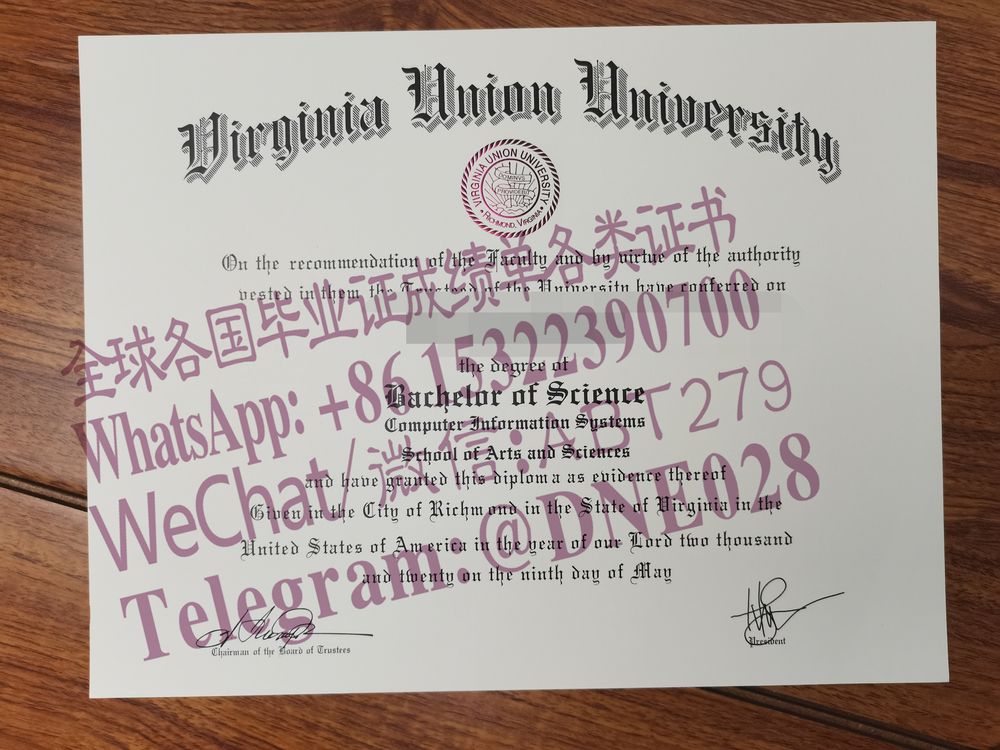 Virginia Union University
VIRGINIA UNION UNIVERSITY
DOMINUS
PROVIDEBIT
RICHMOND, VIRGINIA
On the recommendation of the Faculty and by virtue of the authority
vested in them the Trustees of the University have conferred on
全球各国毕业证成绩单各类证书
WhatsApp: +86 15322390700
the degree of
Bachelor of Science
Computer Information Systems
WeChat/微信:ABT279
School of Arts and Sciences
and have granted this diploma as evidence thereof
Given in the City of Richmond in the State of Virginia in the
Telegram:@DNE028
United States of America in the year of our Lord two thousand
and twenty on the ninth day of May
Chairman of the Board of Trustees
President